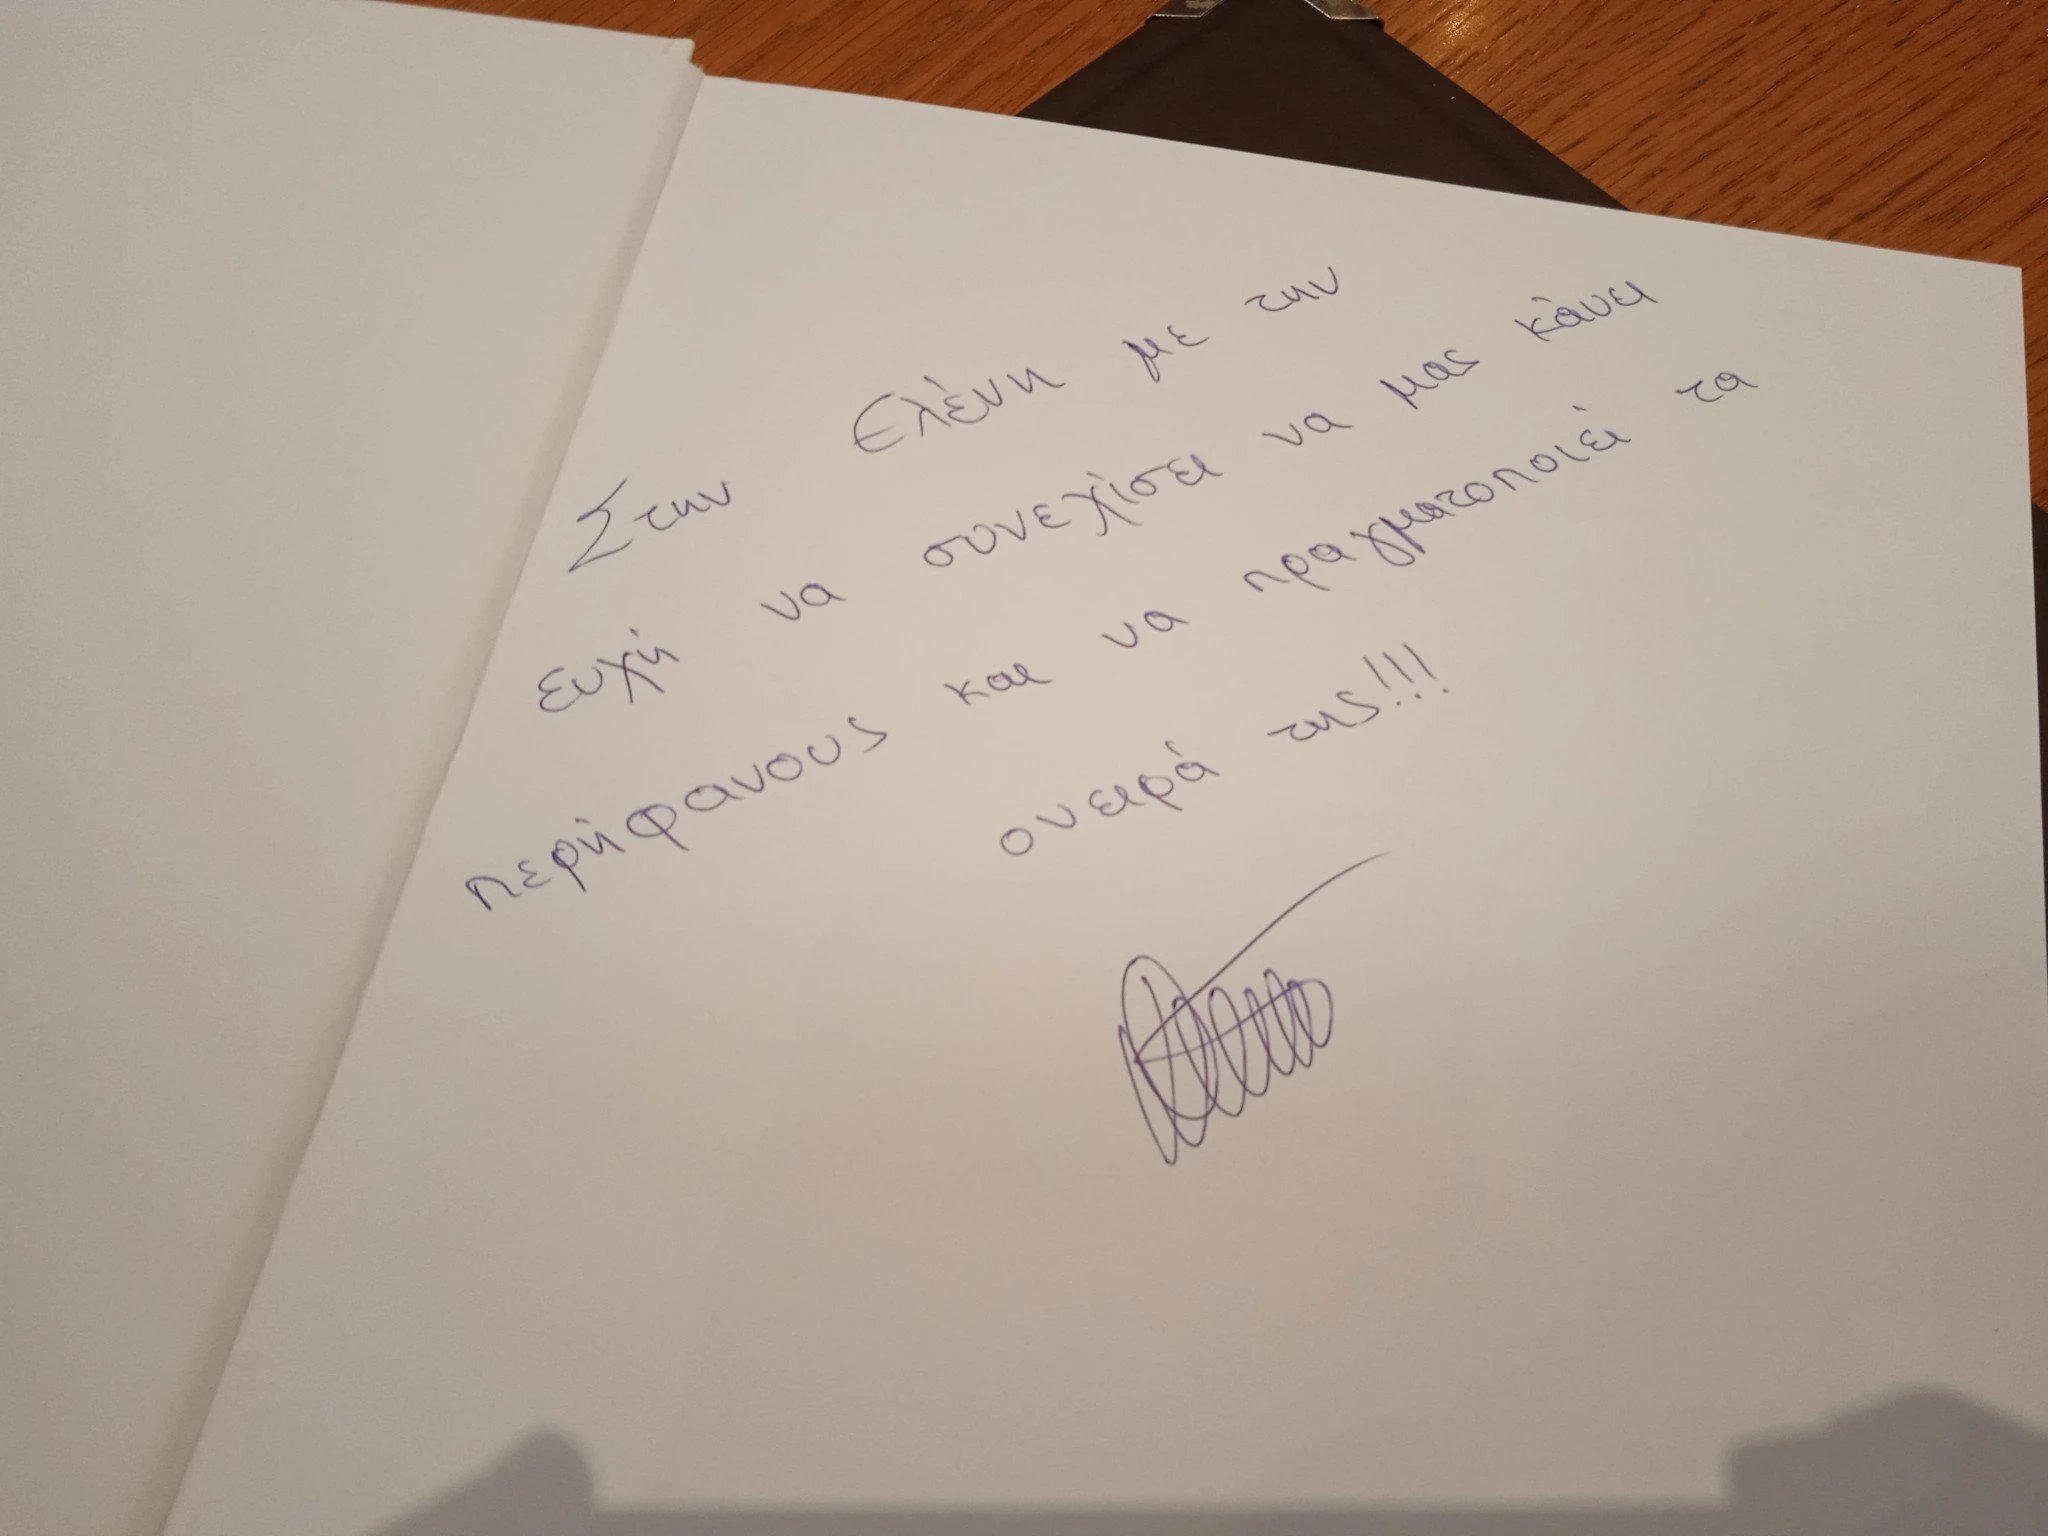 Στην Ελένη με την
ευχή να συνεχίσει να μας κάνει
περήφανους και να πραγματοποιεί τα
ονειρά της!!!